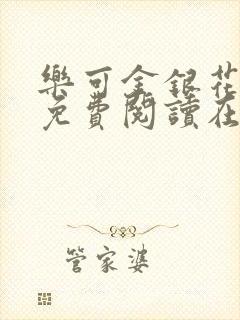 樂可金銀花
免費閱讀在
管家婆